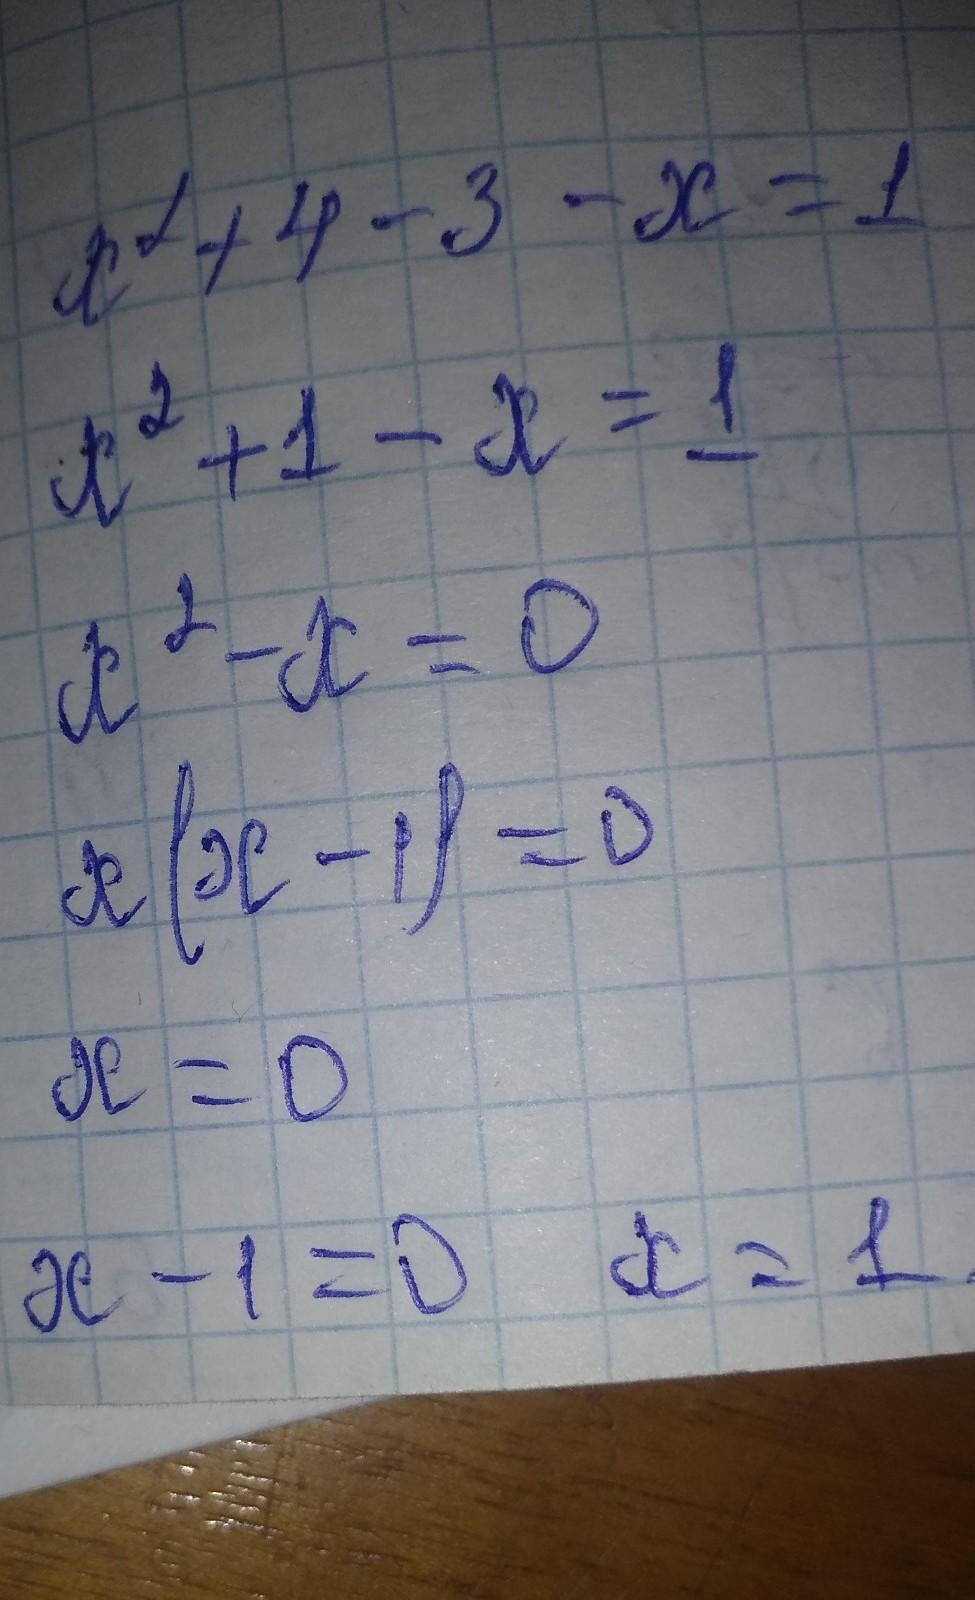 x² + 4 - 3 - x = 1
x² + 1 - x = 1
x² - x = 0
x(x - 1) = 0
x = 0
x - 1 = 0 x = 1.